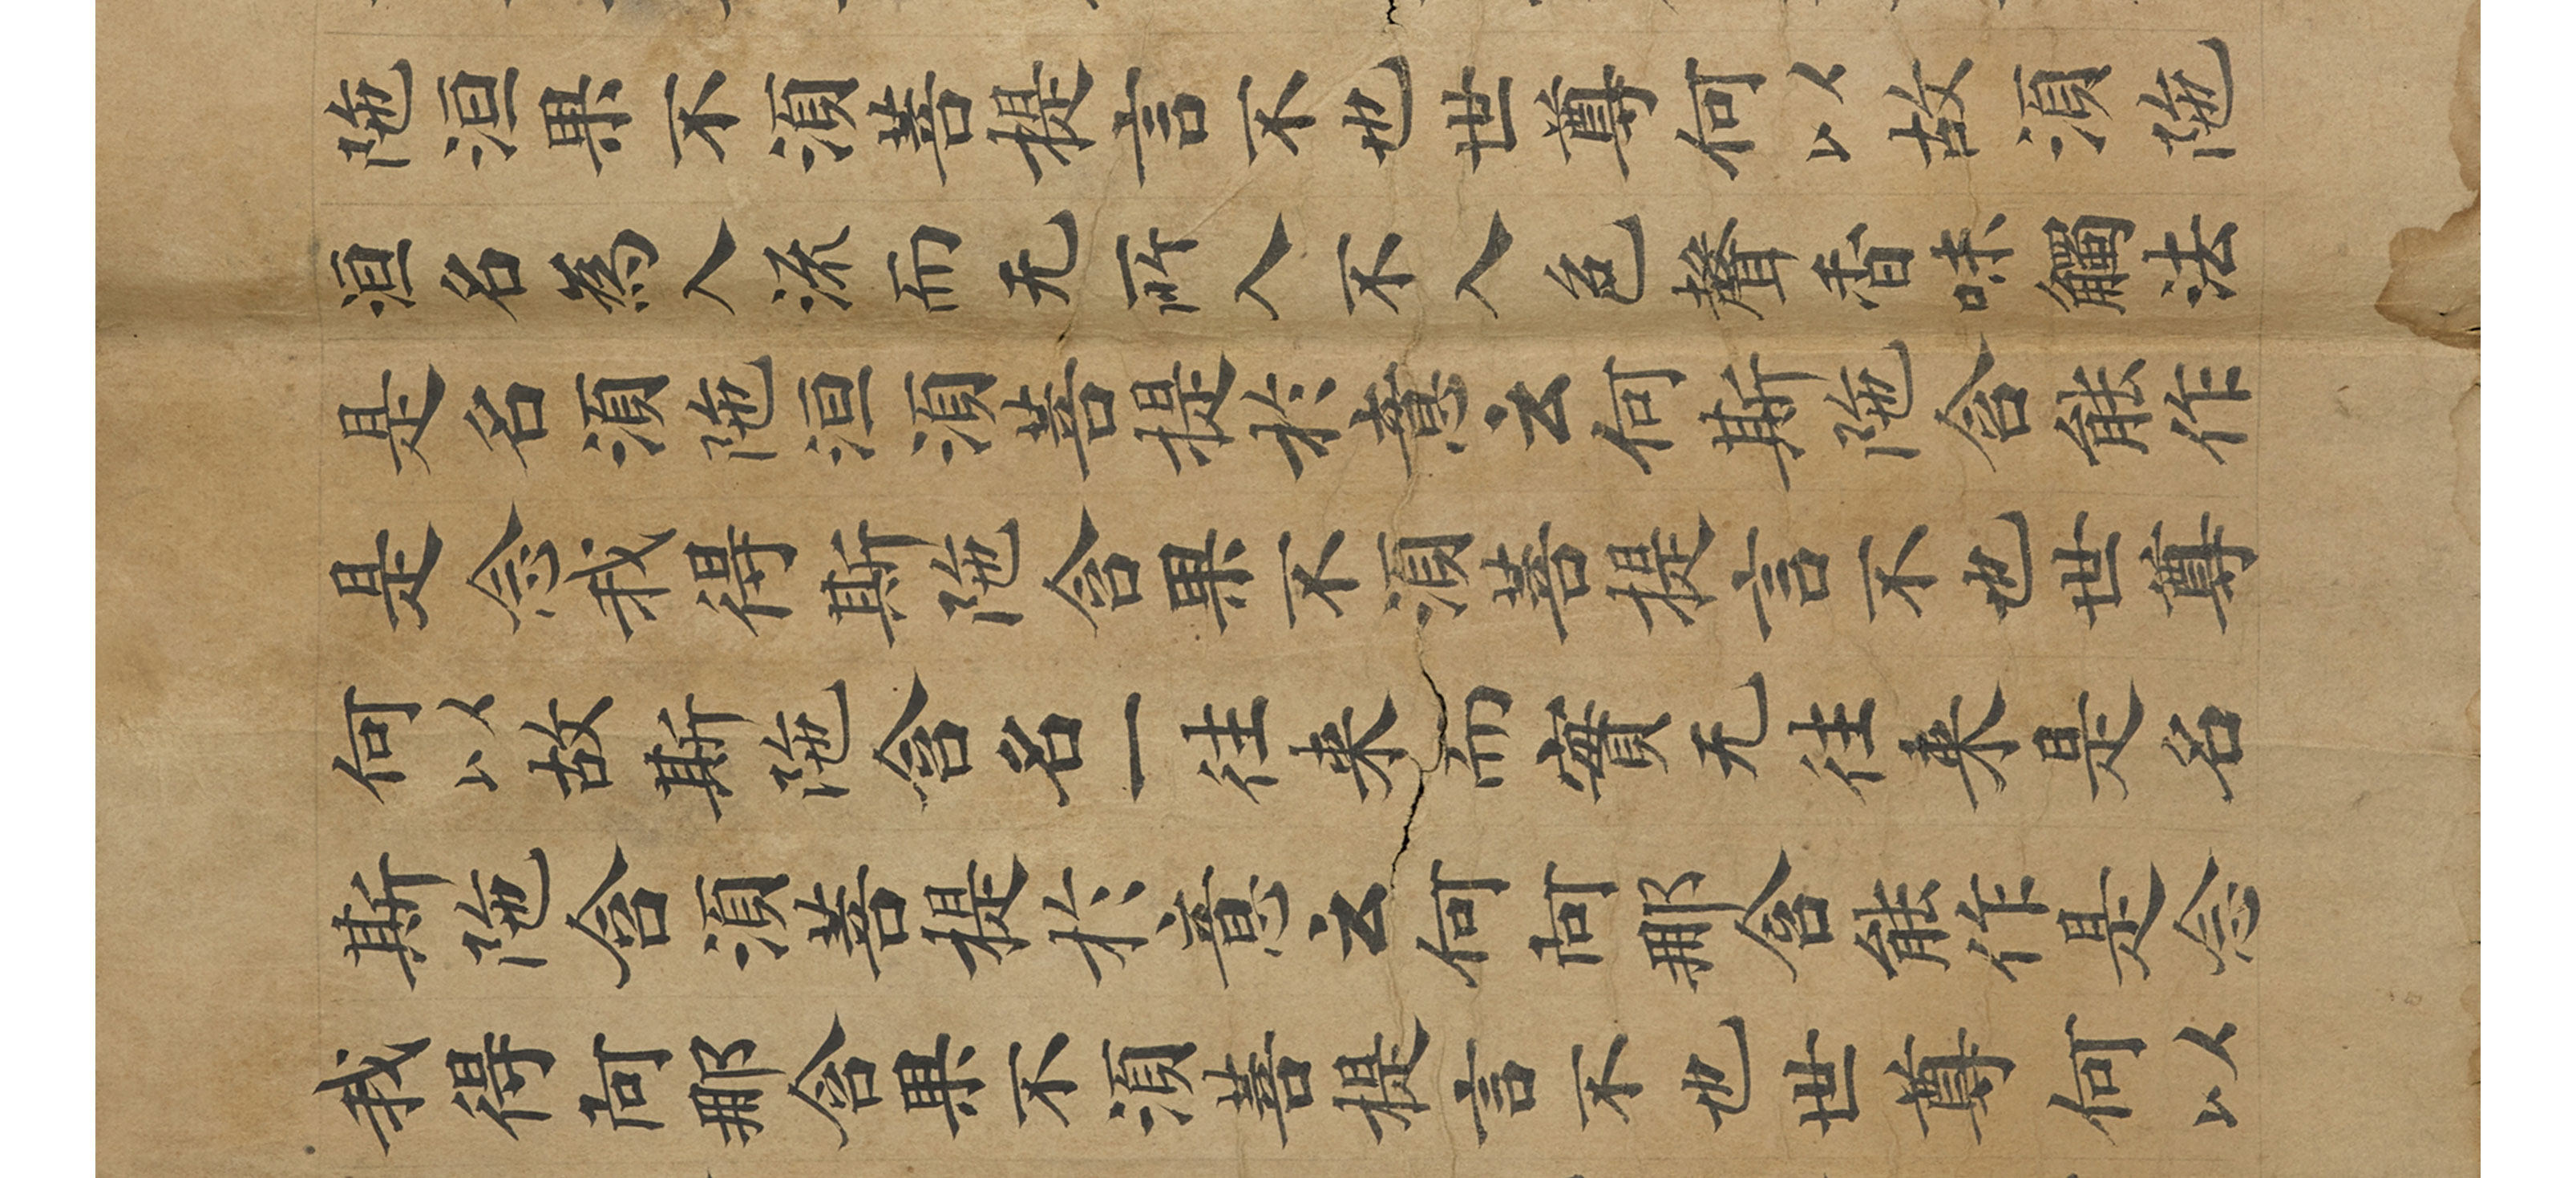 陁洹果不須菩提言不也世尊何以故須陁
洹名為入流而无所入不入色聲香味觸法
是名須陁洹須菩提於意云何斯陁含能作
是念我得斯陁含果不須菩提言不也世尊
何以故斯陁含名一往来而實无往来是名
斯陁含須菩提於意云何阿那含能作是念
我得阿那含果不須菩提言不也世尊何以